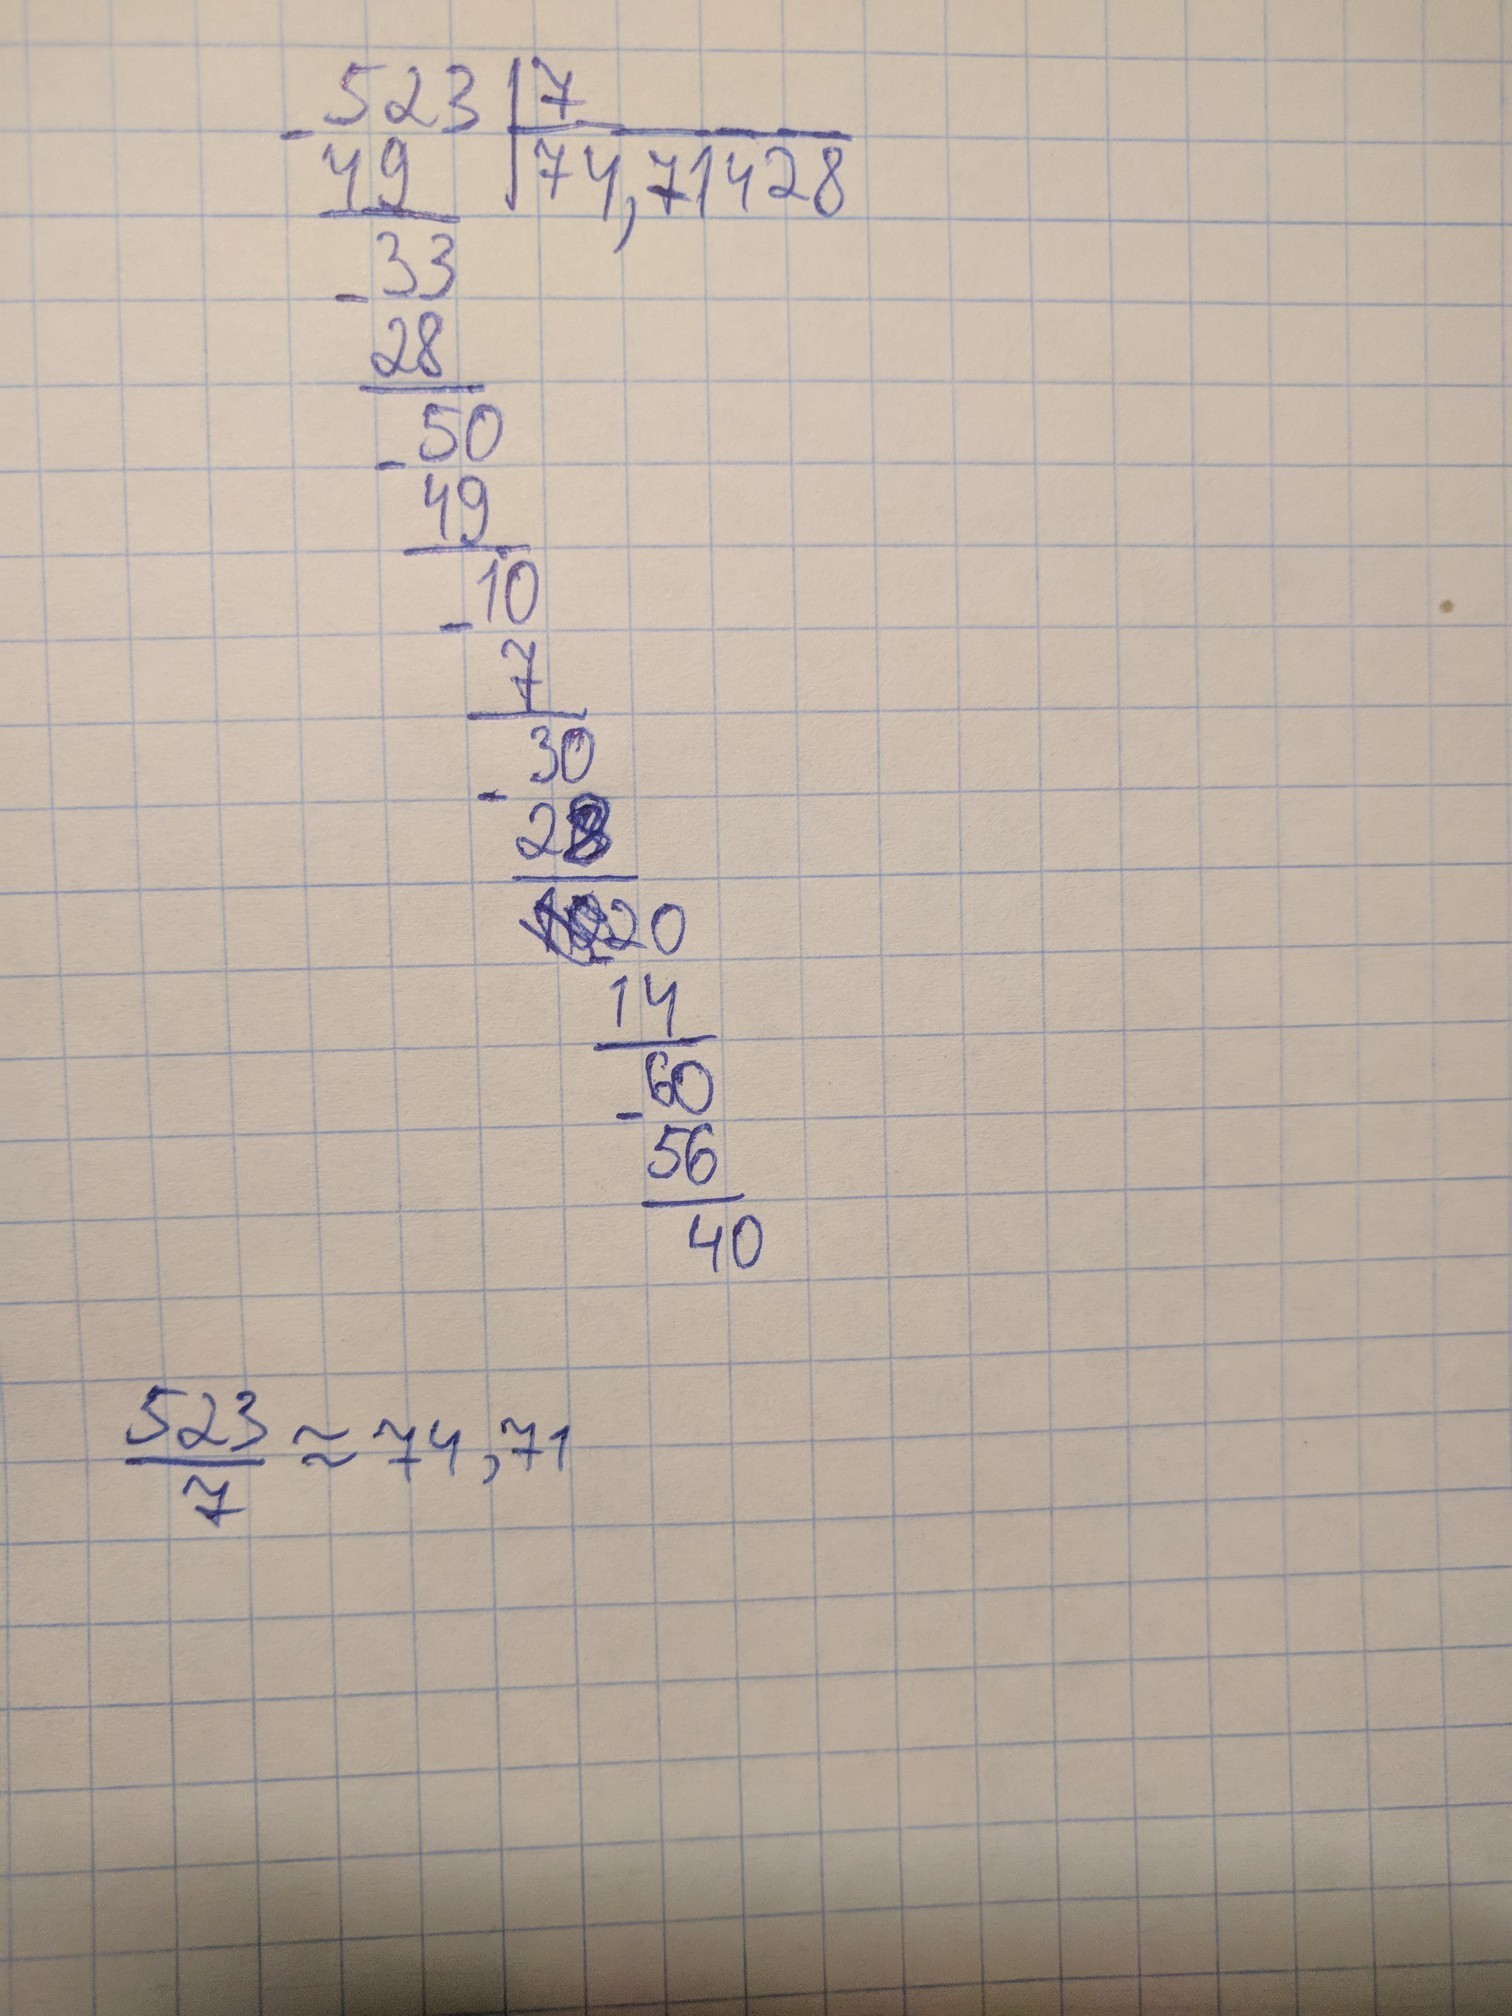 - 523 | 7
49 | 74,71428
- 33
28
- 50
49
- 10
7
- 30
28
20
14
- 60
56
40
523/7 ≈ 74,71